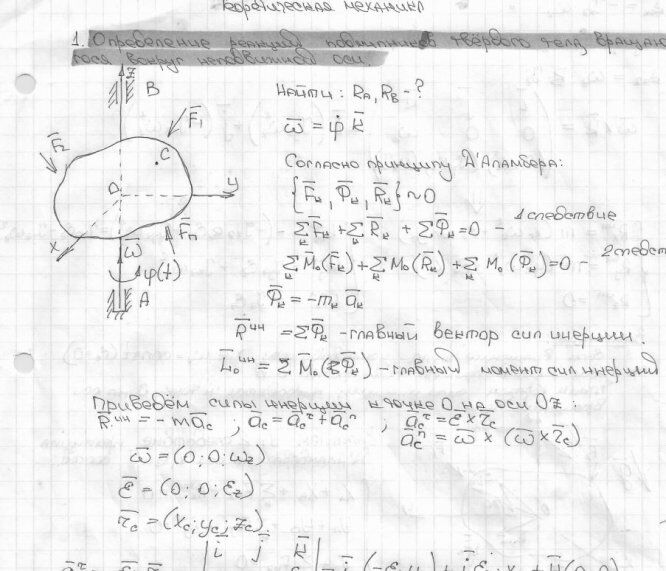 Теоретическая механика
1. Определение реакций подшипников твёрдого тела, вращаю-
гося вокруг неподвижной оси.
z
B
Найти: R_A, R_B - ?
F̄₁
F̄₂
ω̄ = φ̇ k̄
C
Согласно принципу Д'Аламбера:
O
y
{F̄ₖ, Φ̄ₖ, R̄ₖ} ~ 0
x
F̄ₙ
Σₖ F̄ₖ + Σₖ R̄ₖ + Σ Φ̄ₖ = 0 - 1 следствие
ω̄
φ(t)
Σₖ M̄₀(F̄ₖ) + Σₖ M₀(R̄ₖ) + Σₖ M₀(Φ̄ₖ) = 0 - 2 следст
A
Φ̄ₖ = -mₖ āₖ
R̄ᶦᴴ = Σ Φ̄ₖ - главный вектор сил инерции.
L̄₀ᶦᴴ = Σ M̄₀(Φ̄ₖ) - главный момент сил инерции
Приведём силы инерции к точке O на оси Oz:
R̄ᶦᴴ = -m ā_c ; ā_c = ā_c^τ + ā_c^n ; ā_c^τ = ε̄ × r̄_c
ā_c^n = ω̄ × (ω̄ × r̄_c)
ω̄ = (0; 0; ω_z)
ε̄ = (0; 0; ε_z)
r̄_c = (x_c; y_c; z_c)
ī j̄ k̄